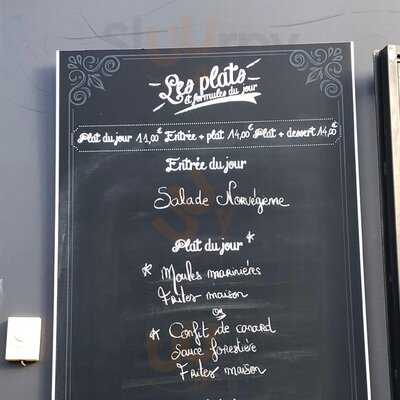 Les plats
et formules du jour
Plat du jour 11,00€ Entrée + plat 14,00€ Plat + dessert 14,00€
Entrée du jour
Salade Norvégienne
Plat du jour *
* Moules marinières
Frites maison
ou
* Confit de canard
Sauce forestière
Frites maison